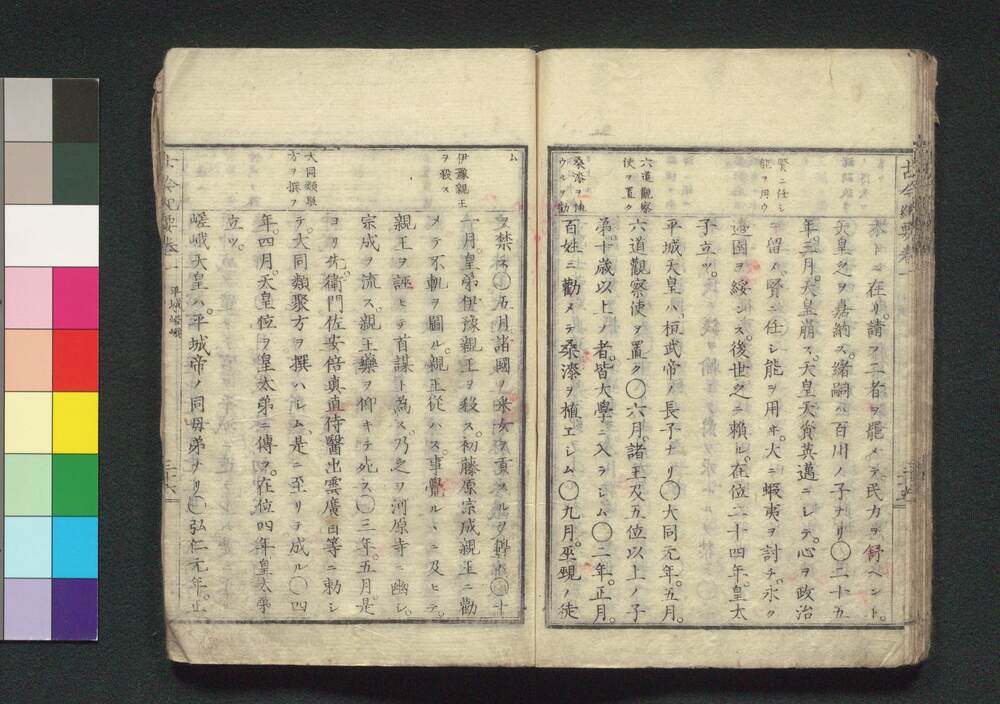 古今紀要卷一
本トニ在リ。請フ二者ヲ罷メテ。民力ヲ舒ベント。
天皇之ヲ嘉納ス。緒嗣ハ百川ノ子ナリ〇二十五
年。三月。天皇崩ス。天皇天資英邁ニシテ。心ヲ政治
ニ留メ。賢ニ任シ能ヲ用ヰ。大ニ蝦夷ヲ討チ。永ク
邊圉ヲ綏ンス。後世之ニ賴ル。在位二十四年。皇太
子立ツ。
平城天皇ハ。桓武帝ノ長子ナリ〇大同元年。五月。
六道觀察使ヲ置ク〇六月。諸王及五位以上ノ子
弟。十歲以上ノ者。皆大學ニ入ラシム〇二年。正月。
百姓ニ勸メテ。桑漆ヲ植エシム。〇九月。巫覡ノ徒
賢ニ任シ
能ヲ用ウ
六道觀察
使ヲ置ク
桑漆ヲ植
ウルヲ勸
ム
ヲ禁ス〇五月。諸國ノ采女ヲ貢スルヲ停ム〇十
一月。皇弟伊豫親王ヲ殺ス。初藤原宗成親王ニ勸
メテ不軌ヲ圖ル。親王從ハス。事覺ルヽニ及ヒテ。
親王ヲ誣ヒテ首謀ト為ス。乃之ヲ河原寺ニ幽シ。
宗成ヲ流ス。親王藥ヲ仰キテ死ス〇三年。五月。是
ヨリ先。衛門佐安倍眞直侍醫出雲廣貞等ニ勅シ
テ。大同類聚方ヲ撰ハシム。是ニ至リテ成ル〇四
年。四月。天皇位ヲ皇太弟ニ傳フ。在位四年。皇太弟
立ツ。
嵯峨天皇ハ。平城帝ノ同母弟ナリ〇弘仁元年。正
伊豫親王
ヲ殺ス
大同類聚
方ヲ撰フ
平城 嵯峨
二十六